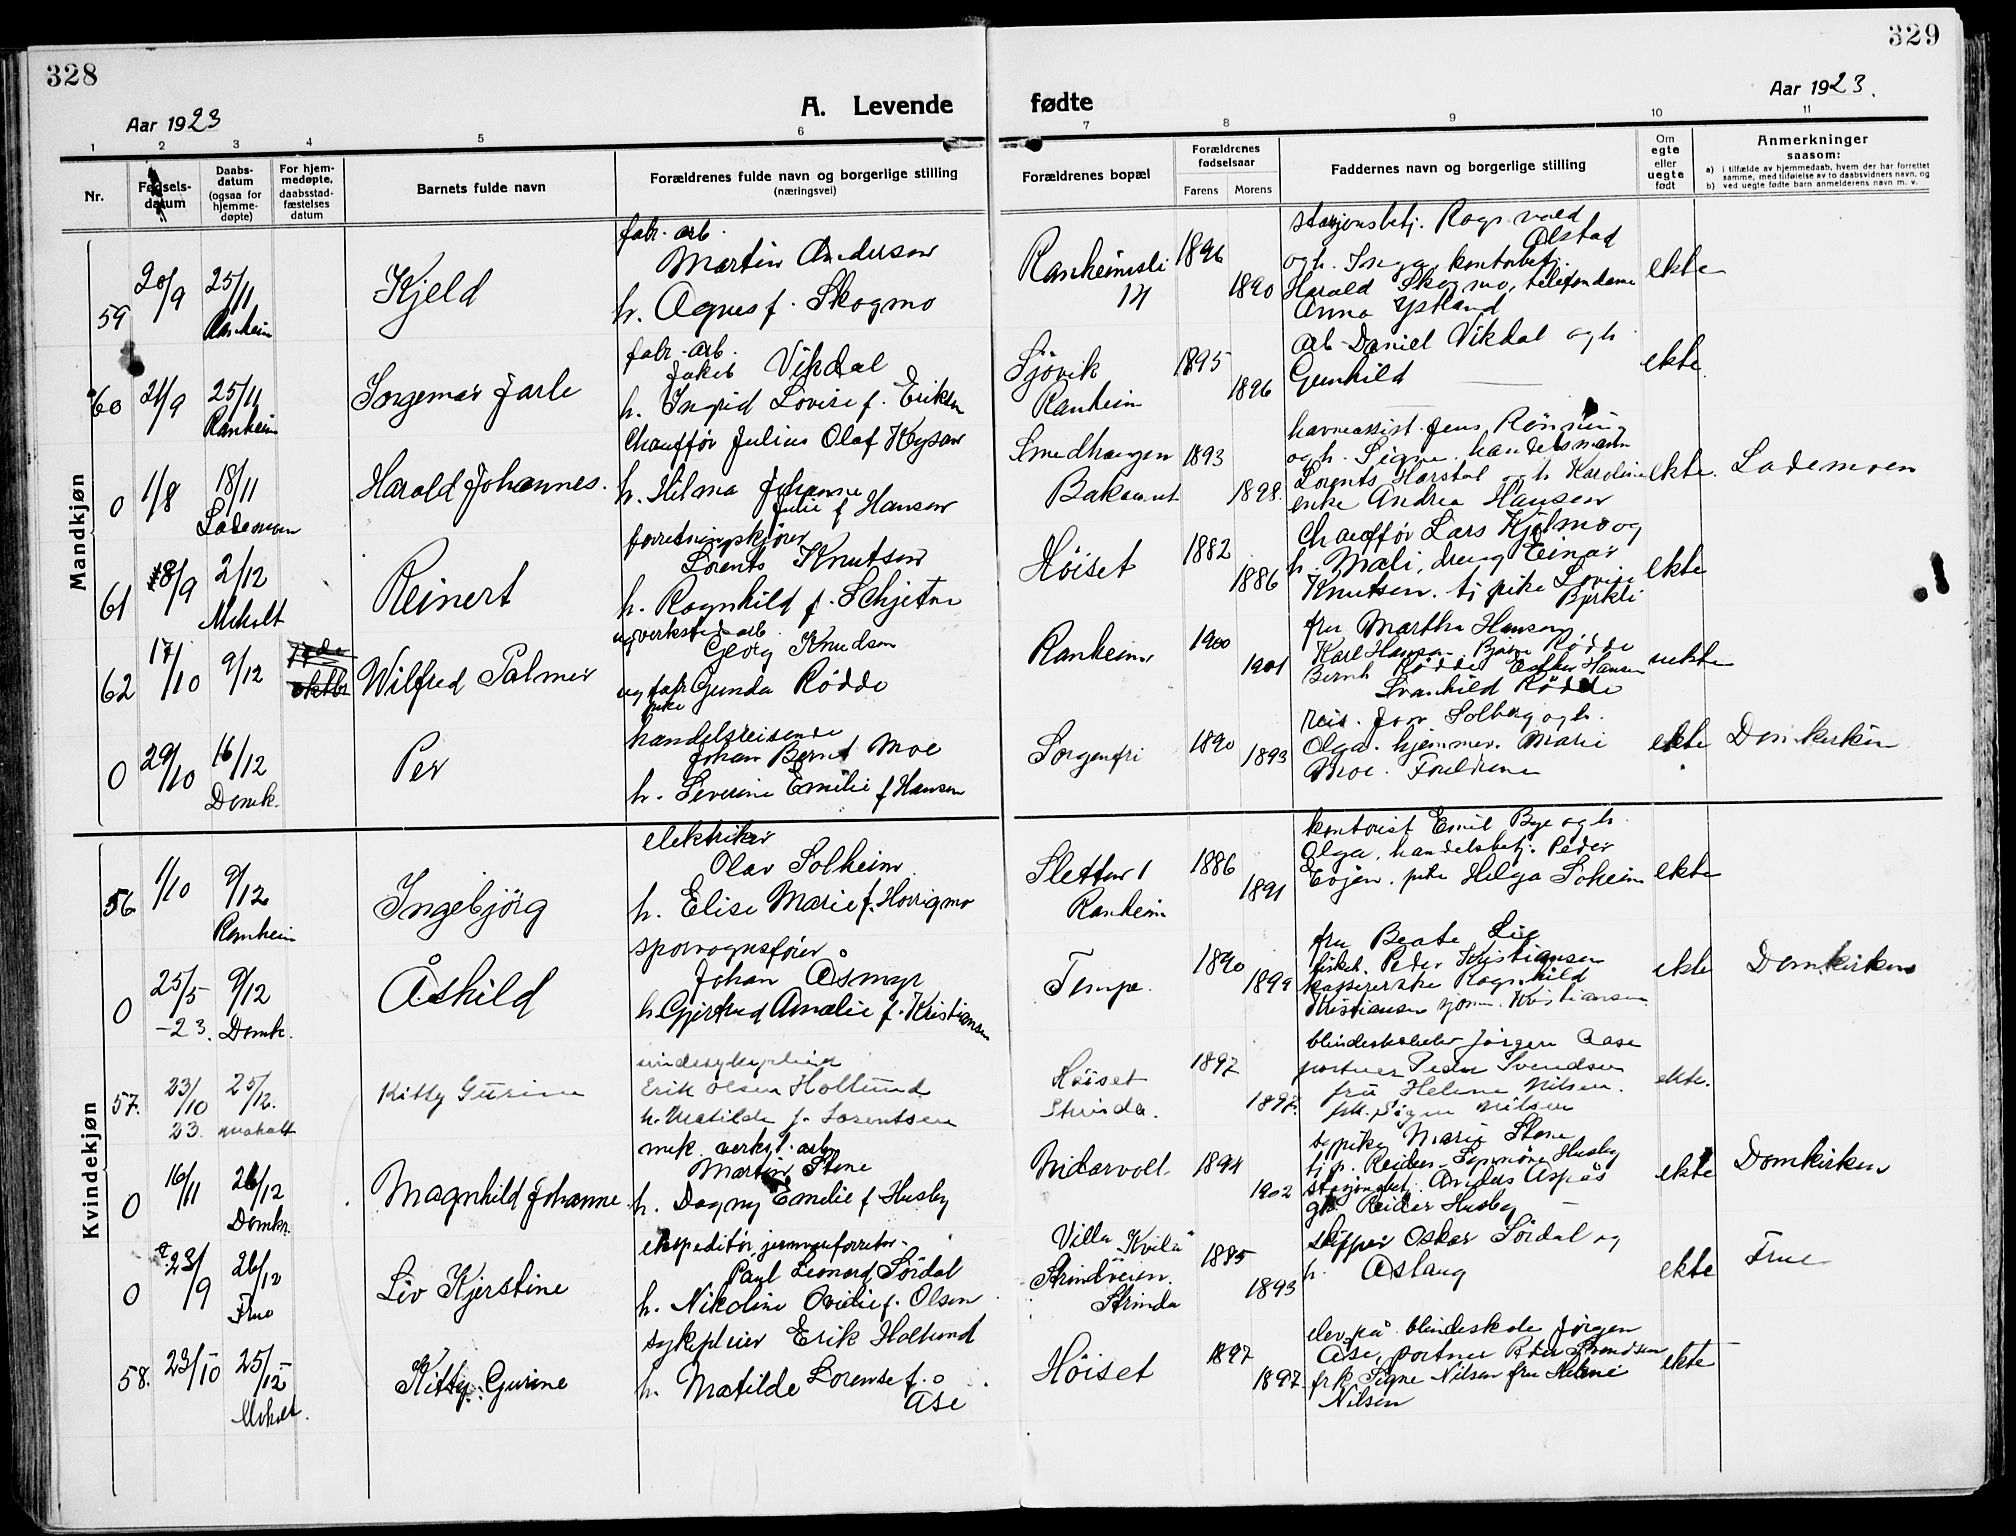 328
329
Aar 1923
A. Levende fødte
Aar 1923.
1 2 3 4 5 6 7 8 9 10 11
Nr.
Fødsels-
datum
Daabs-
datum
(ogsaa for
hjemme-
døpte)
For hjem-
medøpte,
daabsstad-
fæstelses
datum
Barnets fulde navn
Forældrenes fulde navn og borgerlige stilling
(næringsvei)
Forældrenes bopæl
Forældrenes
fødselsaar
Farens Morens
Faddernes navn og borgerlige stilling
Om
egte
eller
uegte
født
Anmerkninger
saasom:
a) i tilfælde av hjemmedaab, hvem der har forrettet
samme, med tilføielse av to daabsvidners navn, og
b) ved uegte fødte barn anmelderens navn m. v.
Mandkjøn
59
20/9
25/11
Ranheim
Kjeld
fabr. arb.
Martin Andersen
h. Agnes f. Skogmo
Ranheimsli
14
1896
1890
stasjonsbetj. Ragnvald
Alstad
og h. Inga, kontorbetj.
Harald Skogmo, telefondame
Anna Ystland
ekte
60
21/9
25/11
Ranheim
Ingemar Jarle
fabr. arb.
Jakob Vikdal
h. Ingrid Lovise f. Eriksen
Sjövik
Ranheim
1895
1896
arb. Daniel Vikdal og h.
Gunhild
ekte
0
1/8
18/11
Lademoen
Harald Johannes.
Chauffør Julius Olaf
h. Hilma Johanne
Julie f Hansen
Smedhaugen
Bakaunet
1893
1898.
havneassist. Jens Rönning
og h. Signe. handelsmann
Lorents Harstad og h. Karoline
enke Andrea Hansen
ekte.
Lademoen
61
18/9
2/12
Moholt
Reinert
forretningskjører
Lorents Knutsen
h. Ragnhild f. Schjetne
Höiset
1882
1886
Chauffør Lars Kjelmo og
h. Mali, dreng Einar
Knutsen. tj. pike Lovise
Bjerkli
ekte
62
17/10
9/12
17de
oktbr
Wilfred Palmer
ug verksted arb.
Georg Knudsen
ug fabr Gunda Rödde
pike
Ranheim
1900
1901
fru Martha Hansen,
Karl Hansen Rödde
Bernh Rödde Esther Hansen
Svanhild Rödde
uekte
0
29/10
16/12
Domk.
Per
handelsreisende
Johan Bernt Moe
h. Severine Emilie f Hansen
Sorgenfri
1890
1893
reis. Joar Solberg og h.
Olga. hjemmev. Marie
Moe. Foreldrene
ekte
Domkirken
Kvindekjøn
56
1/10
9/12
Ranheim
Ingebjörg
elektriker
Olav Solheim
h. Elise Marie f. Hovigmo
Sletten 1
Ranheim
1886
1891
kontorist Emil Bye og h.
Olga, handelsbetj. Peder
pike Helga Solheim
ekte
0
25/5
-23.
9/12
Domk.
Åshild
sporvognsfører
Johan Åsmyr
h. Gjertrud Amalie f. Kristiansen
Tempe.
1890
1899
fru Beate Lie
Peder Kristiansen
kassererske Ragnhild
Kristiansen sjöm. Kristiansen
ekte
Domkirken
57.
23/10
23.
25/12.
Moholt
Kitty Gurine
sindssykepleier
Erik Olsen Holtund
h. Matilde f. Lorentsen
Höiset
Strinda.
1897
1897.
blindeskoleelev Jörgen Aase
portner Peder Svendsen
fru Helene Nilsen.
frk. Signe Nilsen
ekte.
0
16/11
26/12
Domkr.
Magnhild Johanne
mek. verkst. arb.
Martin Stene
h. Dagny Emilie f Husby
Nidarvoll
1894
1902
tj. pike Marie Stene,
Husby
stasjonsbetj. Anders Aspås
Reidar Husby
ekte
Domkirken
0
23/9
26/12
Frue
Liv Kjerstine
ekspeditör, jernvareforretn.
Paul Leonard Sördal
h. Nikoline Ovidie f. Olsen
Villa "Kvila"
Strindveien.
Strinda
1885
1893
skipper Oskar Sördal og
h. Aslaug
ekte
Frue
58.
23/10
25/12
Moholt.
Kitty Gurine
sykepleier Erik Holtund
h. Matilde Lorense f.
Åse
Höiset
1897
1897.
elev på blindeskole Jörgen
Åse, portner Peder Svendsen
frk. Signe Nilsen fru Helene
Nilsen
ekte